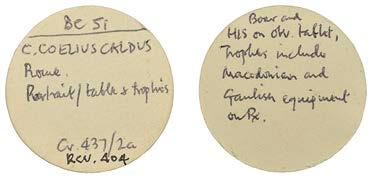 BC 51
C. COELIUS CALDUS
Rome.
Portrait/table & trophies
Cr. 437/2a
RCV. 404
Boar and
HIS on obv. tablet,
Trophies include
Macedonian and
Gaulish equipment
on Rx.